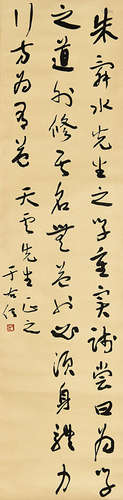 朱舜水先生之学重实践尝曰为学
之道外修其名无益也必须身体力
行方为有益
天云先生正之
于右任